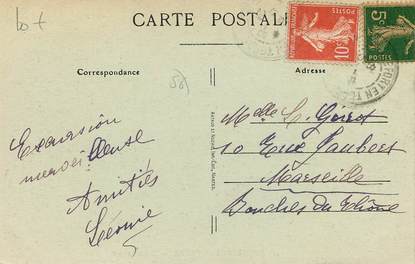 lot
CARTE POSTALE
Correspondance
Adresse
58
10c
POSTES
5c
POSTES
Excursion
merveilleuse
Amitiés
Léonie
Melle
10 Rue Jaubert
Marseille
Bouches du Rhône